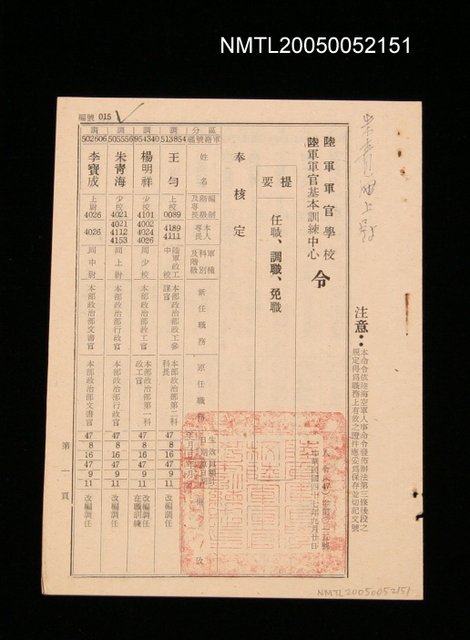 NMTL20050052151
編號 015
陸軍軍官學校
陸軍軍官基本訓練中心
令
注意：
本命令依陸海空軍人事命令發佈辦法第三條後段之
規定得為職務上有效之證件應妥為保存並切記文號
中華民國四十七年九月廿日
提要
任職、調職、免職
奉核定
區分
姓名
新任職務
原任職務
調
513854
王勻
上校
0089
4189
4111
陸軍政工
中校
本部政治部政工參謀官
本部政治部第二科科長
47
8
16
47
9
11
調
954340
楊明祥
少校
4101
4021
4024
4026
同少校
本部政治部政工官
本部政治部第一科政工官
47
8
16
47
9
11
改編調任
在職訓練
調
505556
朱青海
少校
4021
4021
4112
4153
同上尉
本部政治部行政官
本部政治部行政官
47
8
16
47
9
11
改編調任
調
502606
李寶成
上尉
4026
4026
同中尉
本部政治部文書官
本部政治部文書官
47
8
16
47
9
11
改編調任
第一頁
NMTL20050052151